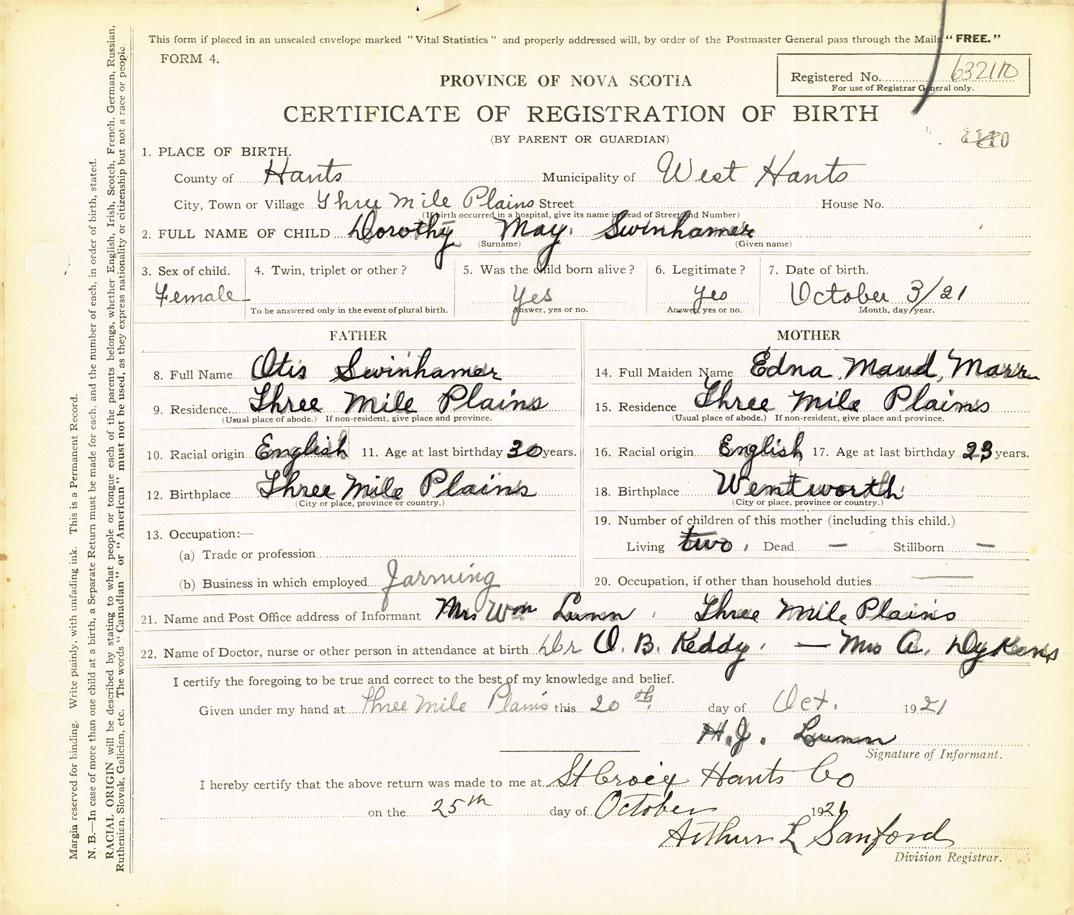 This form if placed in an unsealed envelope marked "Vital Statistics" and properly addressed will, by order of the Postmaster General pass through the Mails "FREE."
FORM 4.
Registered No. 632110
For use of Registrar General only.
PROVINCE OF NOVA SCOTIA
CERTIFICATE OF REGISTRATION OF BIRTH
(BY PARENT OR GUARDIAN)
1. PLACE OF BIRTH.
County of Hants Municipality of West Hants
City, Town or Village Three Mile Plains Street House No.
(If birth occurred in a hospital, give its name instead of Street and Number)
2. FULL NAME OF CHILD Dorothy May. Swinhamer
(Surname) (Given name)
3. Sex of child. 4. Twin, triplet or other? 5. Was the child born alive? 6. Legitimate? 7. Date of birth.
Female Yes yes October 3/21
To be answered only in the event of plural birth. Answer, yes or no. Answer, yes or no. Month, day, year.
FATHER MOTHER
8. Full Name Otis Swinhamer 14. Full Maiden Name Edna Maud, Marr
9. Residence Three Mile Plains 15. Residence Three Mile Plains
(Usual place of abode.) If non-resident, give place and province. (Usual place of abode.) If non-resident, give place and province.
10. Racial origin English 11. Age at last birthday 30 years. 16. Racial origin English 17. Age at last birthday 23 years.
12. Birthplace Three Mile Plains 18. Birthplace Wentworth
(City or place, province or country.) (City or place, province or country.)
13. Occupation:— 19. Number of children of this mother (including this child.)
(a) Trade or profession Living two. Dead — Stillborn —
(b) Business in which employed Farming 20. Occupation, if other than household duties —
21. Name and Post Office address of Informant Mrs Wm Lunn, Three Mile Plains
22. Name of Doctor, nurse or other person in attendance at birth. Dr O. B. Keddy. — Mrs A. Dykens
I certify the foregoing to be true and correct to the best of my knowledge and belief.
Given under my hand at Three Mile Plains this 20th day of Oct. 1921
H.J. Lunn
Signature of Informant.
I hereby certify that the above return was made to me at St Croix Hants Co
on the 25th day of October 1921
Arthur L Sanford
Division Registrar.
Margin reserved for binding. Write plainly, with unfading ink. This is a Permanent Record.
N. B.—In case of more than one child at a birth, a Separate Return must be made for each, and the number of each, in order of birth, stated.
RACIAL ORIGIN will be described by stating to what people or tongue each of the parents belongs, whether English, Irish, Scotch, French, German, Russian,
Ruthenian, Slovak, Galician, etc. The words "Canadian" or "American" must not be used, as they express nationality or citizenship but not a race or people.